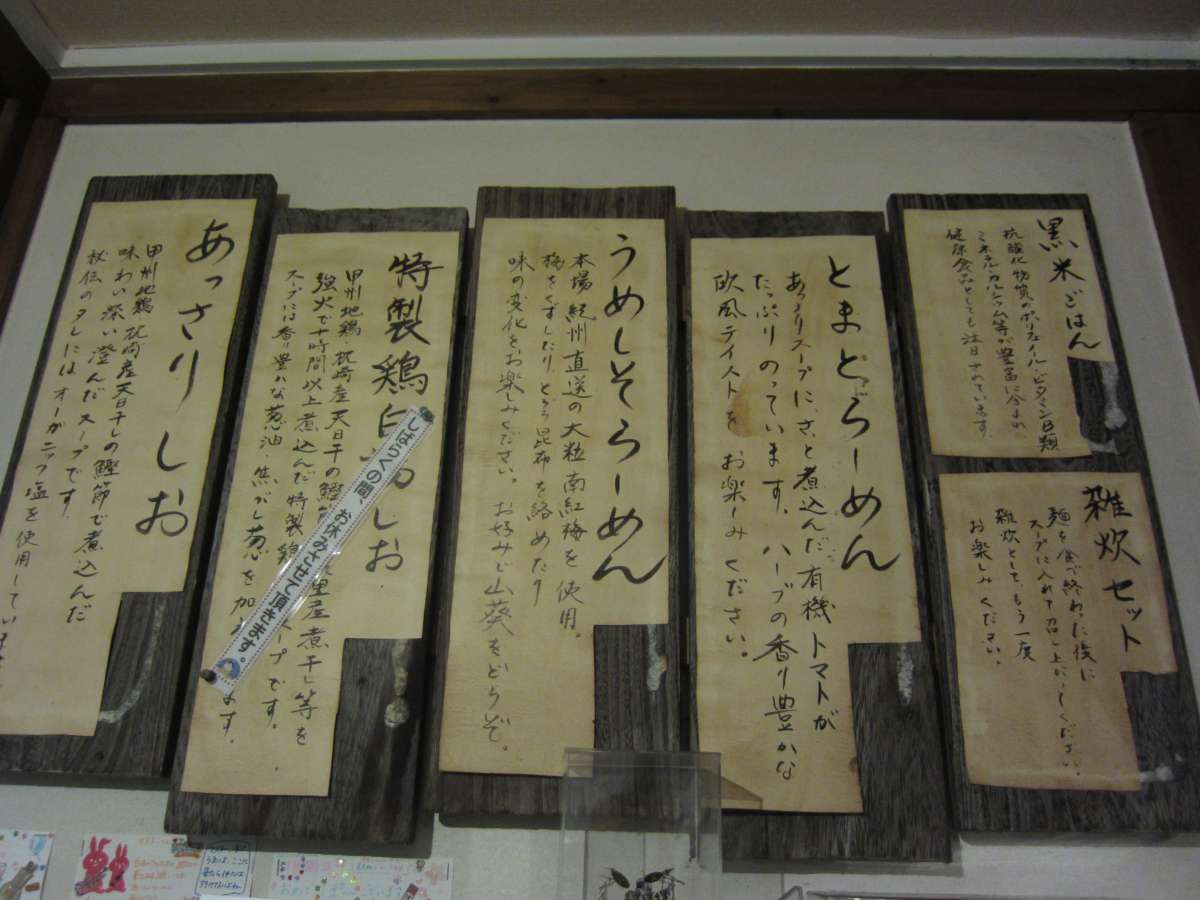 黒米ごはん
抗酸化物質がポリフェノール、ビタミンB類
ミネラル、カルシウム等が豊富に含まれ
健康食品としても注目されています。
雑炊セット
麺を食べ終わった後に
スープに入れて召し上がってください。
雑炊として、もう一度
お楽しみください。
とまとらーめん
あっさりスープに、さっと煮込んだ有機トマトが
たっぷりのっています。ハーブの香り豊かな
欧風テイストをお楽しみください。
うめしそらーめん
本場紀州直送の大粒南紅梅を使用。
梅をくずしたり、とろろ昆布を絡めたり
味の変化をお楽しみください。お好みで山葵をどうぞ。
特製鶏白
しお
甲州地鶏・枕崎産天日干の鰹
里産煮干し等を
強火で十時間以上煮込んだ特製鶏
スープです。
スープには香り豊かな葱油・焦がし葱を加
ます。
しばらくの間、お休みさせて頂きます。
あっさりしお
甲州地鶏、枕崎産天日干しの鰹節で煮込んだ
味わい深い澄んだスープです。
秘伝のタレにはオーガニック塩を使用してい